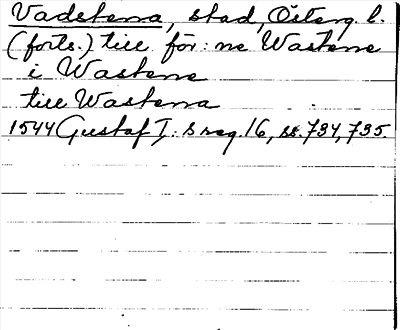 Vadstena, stad, Österg. l.
(forts.) till för: ne Wastene
i Wastene
till Wastena
1544 Gustaf I: s reg. 16, ss. 734, 735.